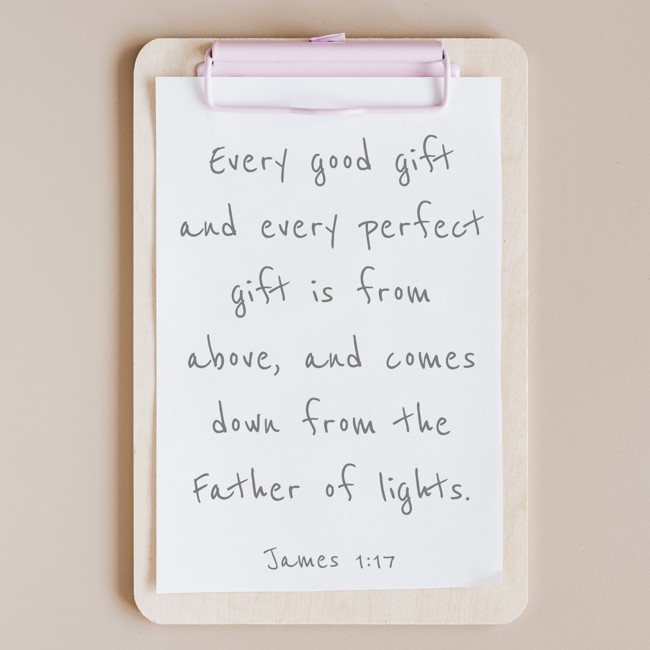 Every good gift
and every perfect
gift is from
above, and comes
down from the
Father of lights.
James 1:17